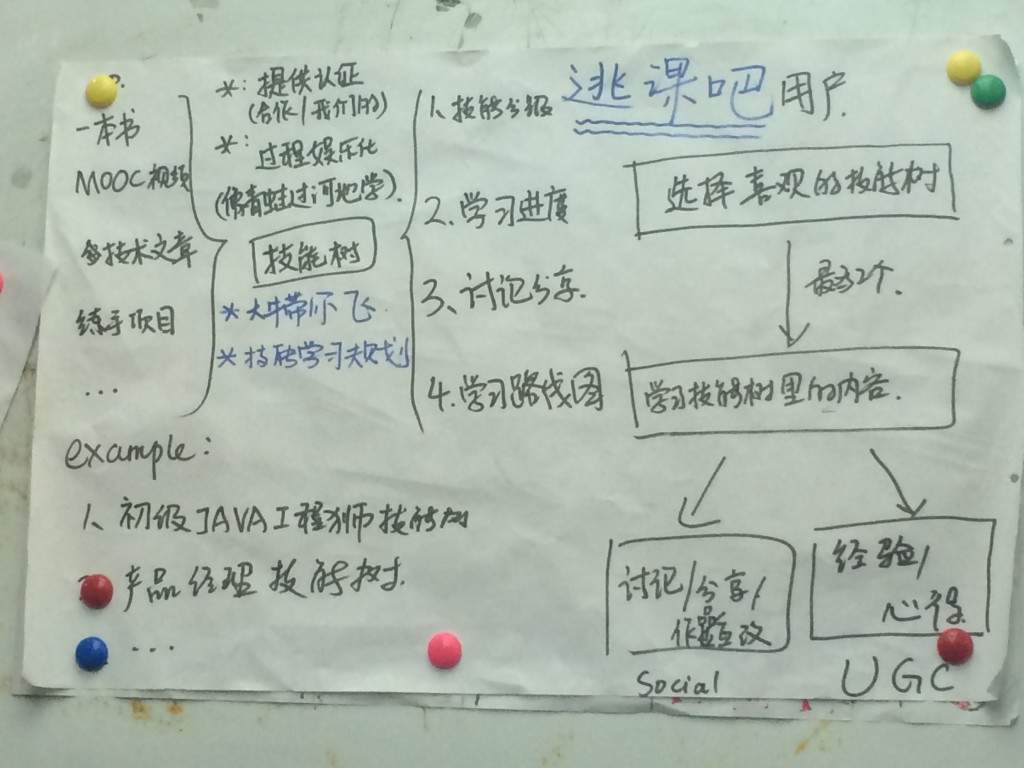 一本书
MOOC视频
技术文章
练手项目
...
*: 提供认证
(合作/我们的)
*: 过程娱乐化
(像青蛙过河地学).
技能树
*大牛带你飞
*技能学习规划
1、技能分级
2.学习进度
3、讨论分享.
4.学习路线图
example:
1、初级JAVA工程狮技能树
产品经理技能树.
...
逃课吧用户
选择喜观的技能树
最多2个.
学习技能树里的内容.
讨论/分享/
作题互改
Social
经验/
心得
UGC